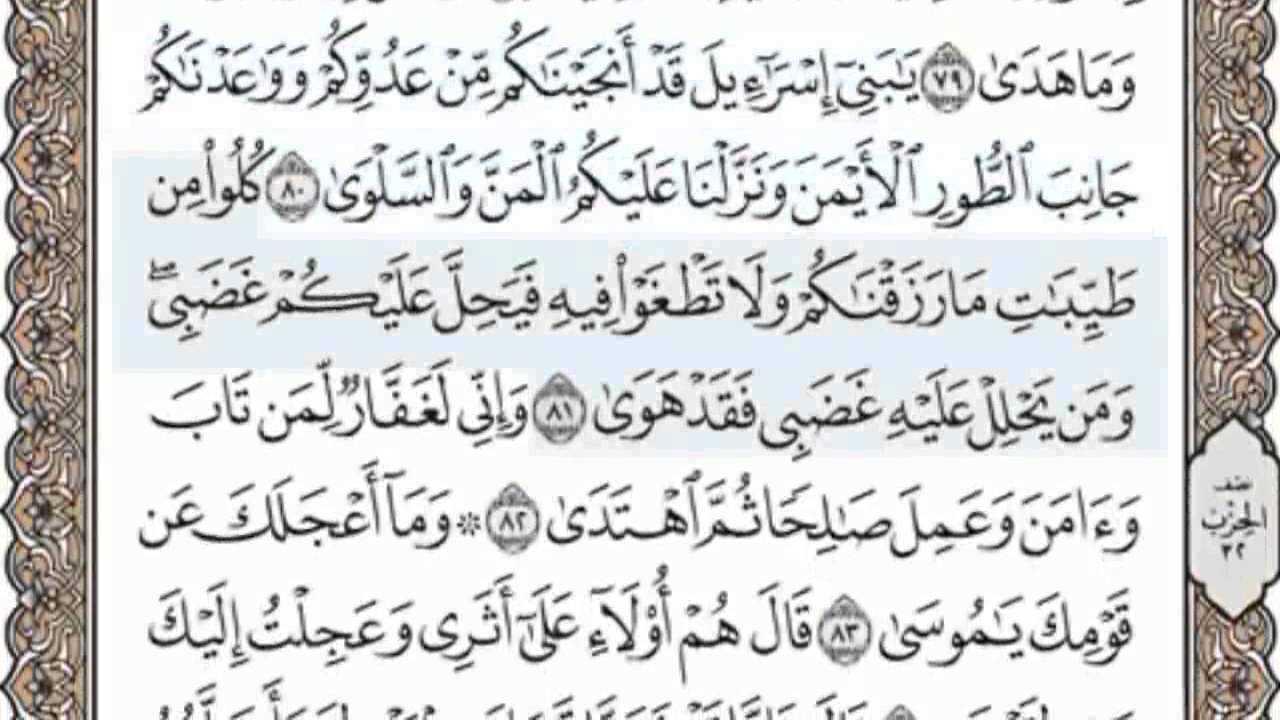 وَمَا هَدَىٰ ٧٩ يَـٰبَنِىٓ إِسْرَٰٓءِيلَ قَدْ أَنجَيْنَـٰكُم مِّنْ عَدُوِّكُمْ وَوَٰعَدْنَـٰكُمْ
جَانِبَ ٱلطُّورِ ٱلْأَيْمَنَ وَنَزَّلْنَا عَلَيْكُمُ ٱلْمَنَّ وَٱلسَّلْوَىٰ ٨٠ كُلُوا۟ مِن
طَيِّبَـٰتِ مَا رَزَقْنَـٰكُمْ وَلَا تَطْغَوْا۟ فِيهِ فَيَحِلَّ عَلَيْكُمْ غَضَبِى ۖ
وَمَن يَحْلِلْ عَلَيْهِ غَضَبِى فَقَدْ هَوَىٰ ٨١ وَإِنِّى لَغَفَّارٌ لِّمَن تَابَ
وَءَامَنَ وَعَمِلَ صَـٰلِحًا ثُمَّ ٱهْتَدَىٰ ٨٢ ۞ وَمَآ أَعْجَلَكَ عَن
قَوْمِكَ يَـٰمُوسَىٰ ٨٣ قَالَ هُمْ أُو۟لَآءِ عَلَىٰٓ أَثَرِى وَعَجِلْتُ إِلَيْكَ
نصف
الحزب
٣٢